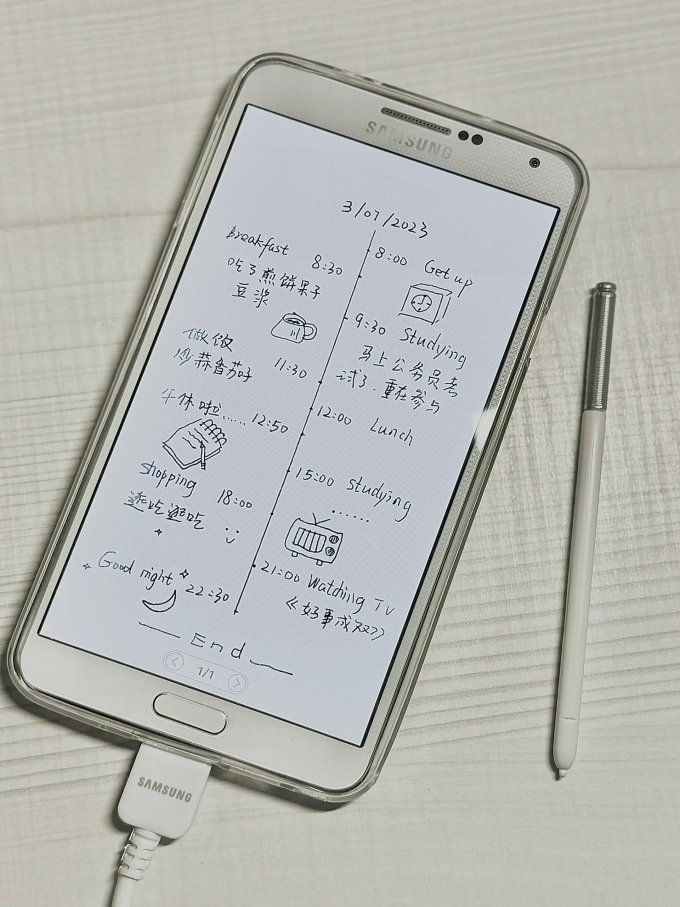 SAMSUNG
3/07/2023
8:00 Get up
Breakfast 8:30
吃了煎饼果子
豆浆
9:30 Studying
马上公务员考
试了.重在参与
做饭
炒蒜香茄子 11:30
12:00 Lunch
午休啦...... 12:50
15:00 Studying
......
Shopping 18:00
逛吃逛吃
21:00 Watching TV
《好事成双》
Good night 22:30
End
1/1
SAMSUNG